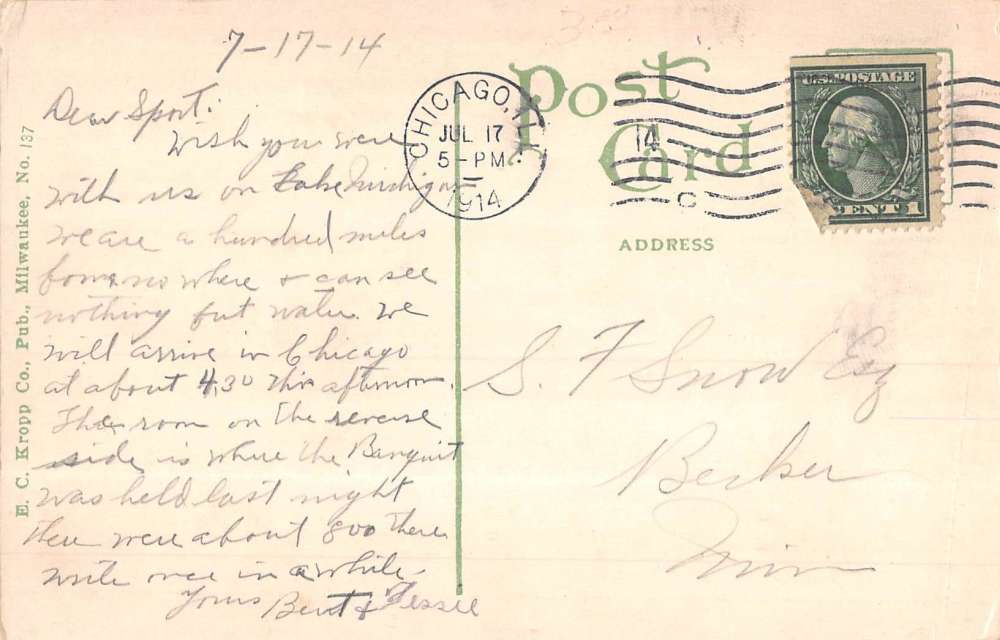 7-17-14
Dear Sport:
Wish you were
with us on Lake Michigan
we are a hundred miles
from no where & can see
nothing but water. We
will arrive in Chicago
at about 4,30 this afternoon.
The room on the reverse
side is where the Banquit
was held last night
there were about 800 there
write once in a while.
Yours Bert & Jessie
E. C. Kropp Co., Pub., Milwaukee, No. 137
Post
Card
ADDRESS
CHICAGO, ILL.
JUL 17
5-PM
1914
14
C
U.S. POSTAGE
CENT 1
S. F Snow Esq
Becker
Minn